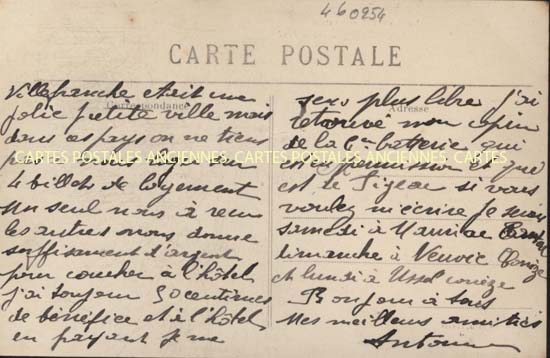 460954
CARTE POSTALE
Correspondance
Adresse
CARTES POSTALES ANCIENNES CARTES POSTALES ANCIENNES CARTES
Villefranche était une
jolie petite ville mais
dans ces pays on ne tiens
pas
4 billets de logement
un seul nous à recu
les autres nous donne
suffisament d'argent
pour coucher à l'hôtel
j'ai toujour 50 centimes
de bénéfice et à l'hôtel
en payant je me
sers plus libre j'ai
retrouvé mon copin
de la 6e batterie qui
est et que
est le Pigeau si vous
voulez m'écrire je serai
samedi à Mauriac Cantal
dimanche à Neuvic Corrèze
et lundi à Ussel corrèze
Bonjour à tous
Mes meilleurs amitiés
Antoine